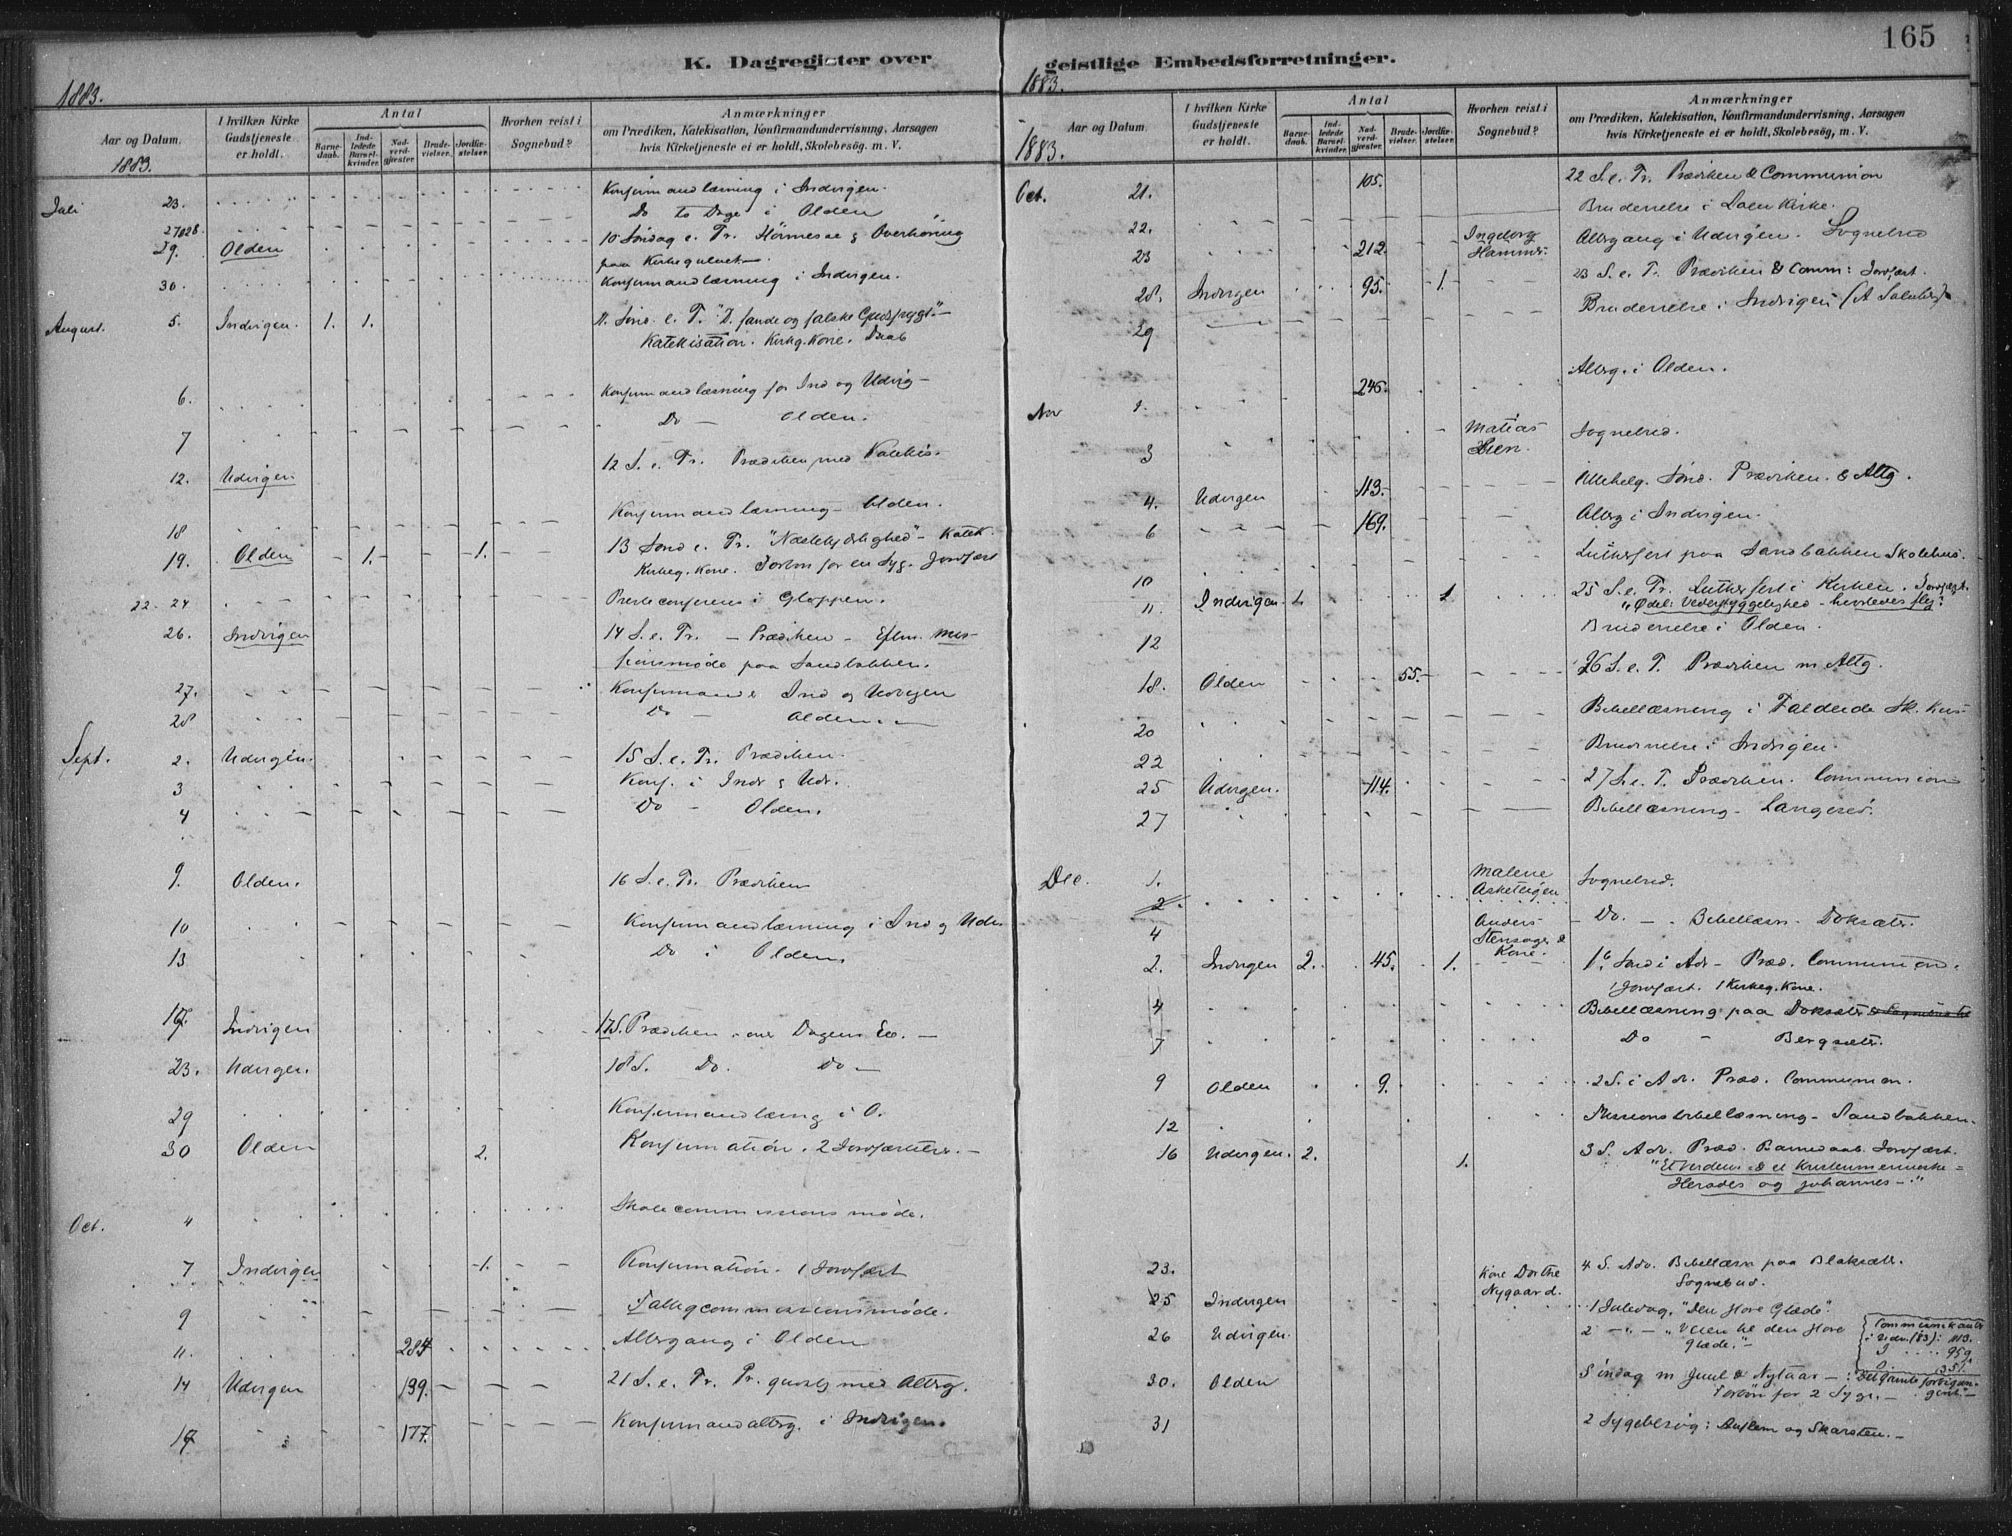 165
K. Dagregister over geistlige Embedsforretninger.
1883.
Aar og Datum.
1883.
I hvilken Kirke Gudstjeneste er holdt.
Antal
Barnedaab.
Indledede Barselkvinder.
Nadverdgjæster.
Brudevielser.
Jordfæstelser.
Hvorhen reist i Sognebud?
Anmærkninger
om Prædiken, Katekisation, Konfirmandundervisning, Aarsagen
hvis Kirketjeneste ei er holdt, Skolebesøg, m. V.
Juli 23. Konfirmandlæsning i Indvigen.
27 o 28. Do to Dage i Olden
29. Olden 10 Søndag e. Tr. Høimesse & Overhøring
paa Kirkegulvet
30. Konfirmandlæsning i Indvigen.
August. 5. Indvigen. 1. 1. 11. Sønd. e. T. "D. sande og falske Gudsfrygt" -
Katekisation. Kirkg. Kone. Daab
6. Konfirmandlæsning for Ind og Udvig -
7 Do - Olden.
12. Udvigen 12 S. e. Tr. Prædiken med Katekis.
18 Konfirmandlæsning - Olden.
19. Olden 1. 1. 13 Sønd e. Tr. "Næstekjærlighed" - Katek.
Kirkeg. Kone. Forbøn for en Syg. Jordfæst
22-24 Præsteconferens i Gloppen.
26. Indvigen 14 S. e. Tr. - Prædiken - Efterm. Mis-
sionsmøde paa Sandbakken.
27. Konfirmander Ind og Udvigen
28 Do - Olden
Sept. 2. Udvigen. 15 S. e. Tr. Prædiken.
3 Konf. i Indv & Udv.
4 Do - Olden.
9. Olden. 16 S. e. Tr. Prædiken
10 Konfirmandlæsning i Ind og Udv.
13 Do i Olden
16. Indvigen 17 S. Prædiken over Dagens Ev. -
23. Udvigen. 18 S. Do. Do -
29 Konfirmandlæsng i O.
30 Olden 2. Konfirmation. 2 Jordfæstelser. -
Oct. 4 Skolecommissionsmøde.
7 Indvigen 1. Konfirmation. 1 Jordfæst
9 Fattigcommissionsmøde.
11. 284 Altergang i Olden
14 Udvigen 199. 21 S. e. Tr. Pr. med Altrg.
177. Konfirmandaltrg. i Indvigen.
1883.
1883.
Aar og Datum.
I hvilken Kirke Gudstjeneste er holdt.
Antal
Barnedaab.
Indledede Barselkvinder.
Nadverdgjæster.
Brudevielser.
Jordfæstelser.
Hvorhen reist i Sognebud?
Anmærkninger
om Prædiken, Katekisation, Konfirmandundervisning, Aarsagen
hvis Kirketjeneste ei er holdt, Skolebesøg, m. V.
Oct. 21. 105. 22 S. e. Tr. Prædiken & Communion
22. Brudevielse i Loen Kirke.
23 212. Ingeborg Hammer. Altergang i Udvigen. Sognebud
28. Indvigen 95. 1. 23 S. e. T. Prædiken & Comm: Jordfæst.
29 Brudevielse i Indvigen
Nov 1. 246. Altrg. i Olden.
3 Matias Sognebud.
4. Udvigen 113. Allehelg. Sønd. Prædiken & Altg.
6 169. Altrg i Indvigen.
10 Lutherfest paa Sandbakken Skolehus.
11. Indvigen 1. 1 25 S. e. Tr. Lutherfest i Kirken. Jordfæst.
12 Brudevielse i Olden.
18. Olden 55. 26 S. e. T. Prædiken m Altg.
20 Bibellæsning i Faldeide Sk. Hus
22 Brudevielse i Indvigen.
25 Udvigen. 114. 27 S. e. T. Prædiken. Communion
27 Bibellæsning - Langesæt.
Dec. 1. Malene Sognebud.
2.
4 Anders & Kone. Do. - Bibellæsn. Doksæter.
2. Indvigen 2. 45. 1. 1ste Sønd i Adv - Præd. Communion.
1 Jordfæst. 1 Kirkeg. Kone.
4 Bibellæsning paa Doksæter
7 Do - Bergsæter.
9 Olden 9. 2 S. i Adv. Præd. Communion.
12 Missionsbibellæsning - Sandbakken.
16 Udvigen. 2. 1. 3 S. Adv. Præd. Barnedaab. Jordfæst.
"Et Verdens- & et Kristenmenneske =
Herodes og Johannes -."
23. Kone Dorthe Nygaard. 4 S. Adv. Bibellæsn paa Blaksæter.
Sognebud.
25 Indvigen 1 Juledag, "Den store Glæde".
26 Udvigen. 2 -"- - "Veien til den store
Glæde." -
Communikanter
i Udv. (83): 113.
I 959
O. 351.
30. Olden Søndag m Juul & Nytaar -
Forbøn for 2 Syge. -
31 2 Sygebesøg: Auflem og Skarsten. -